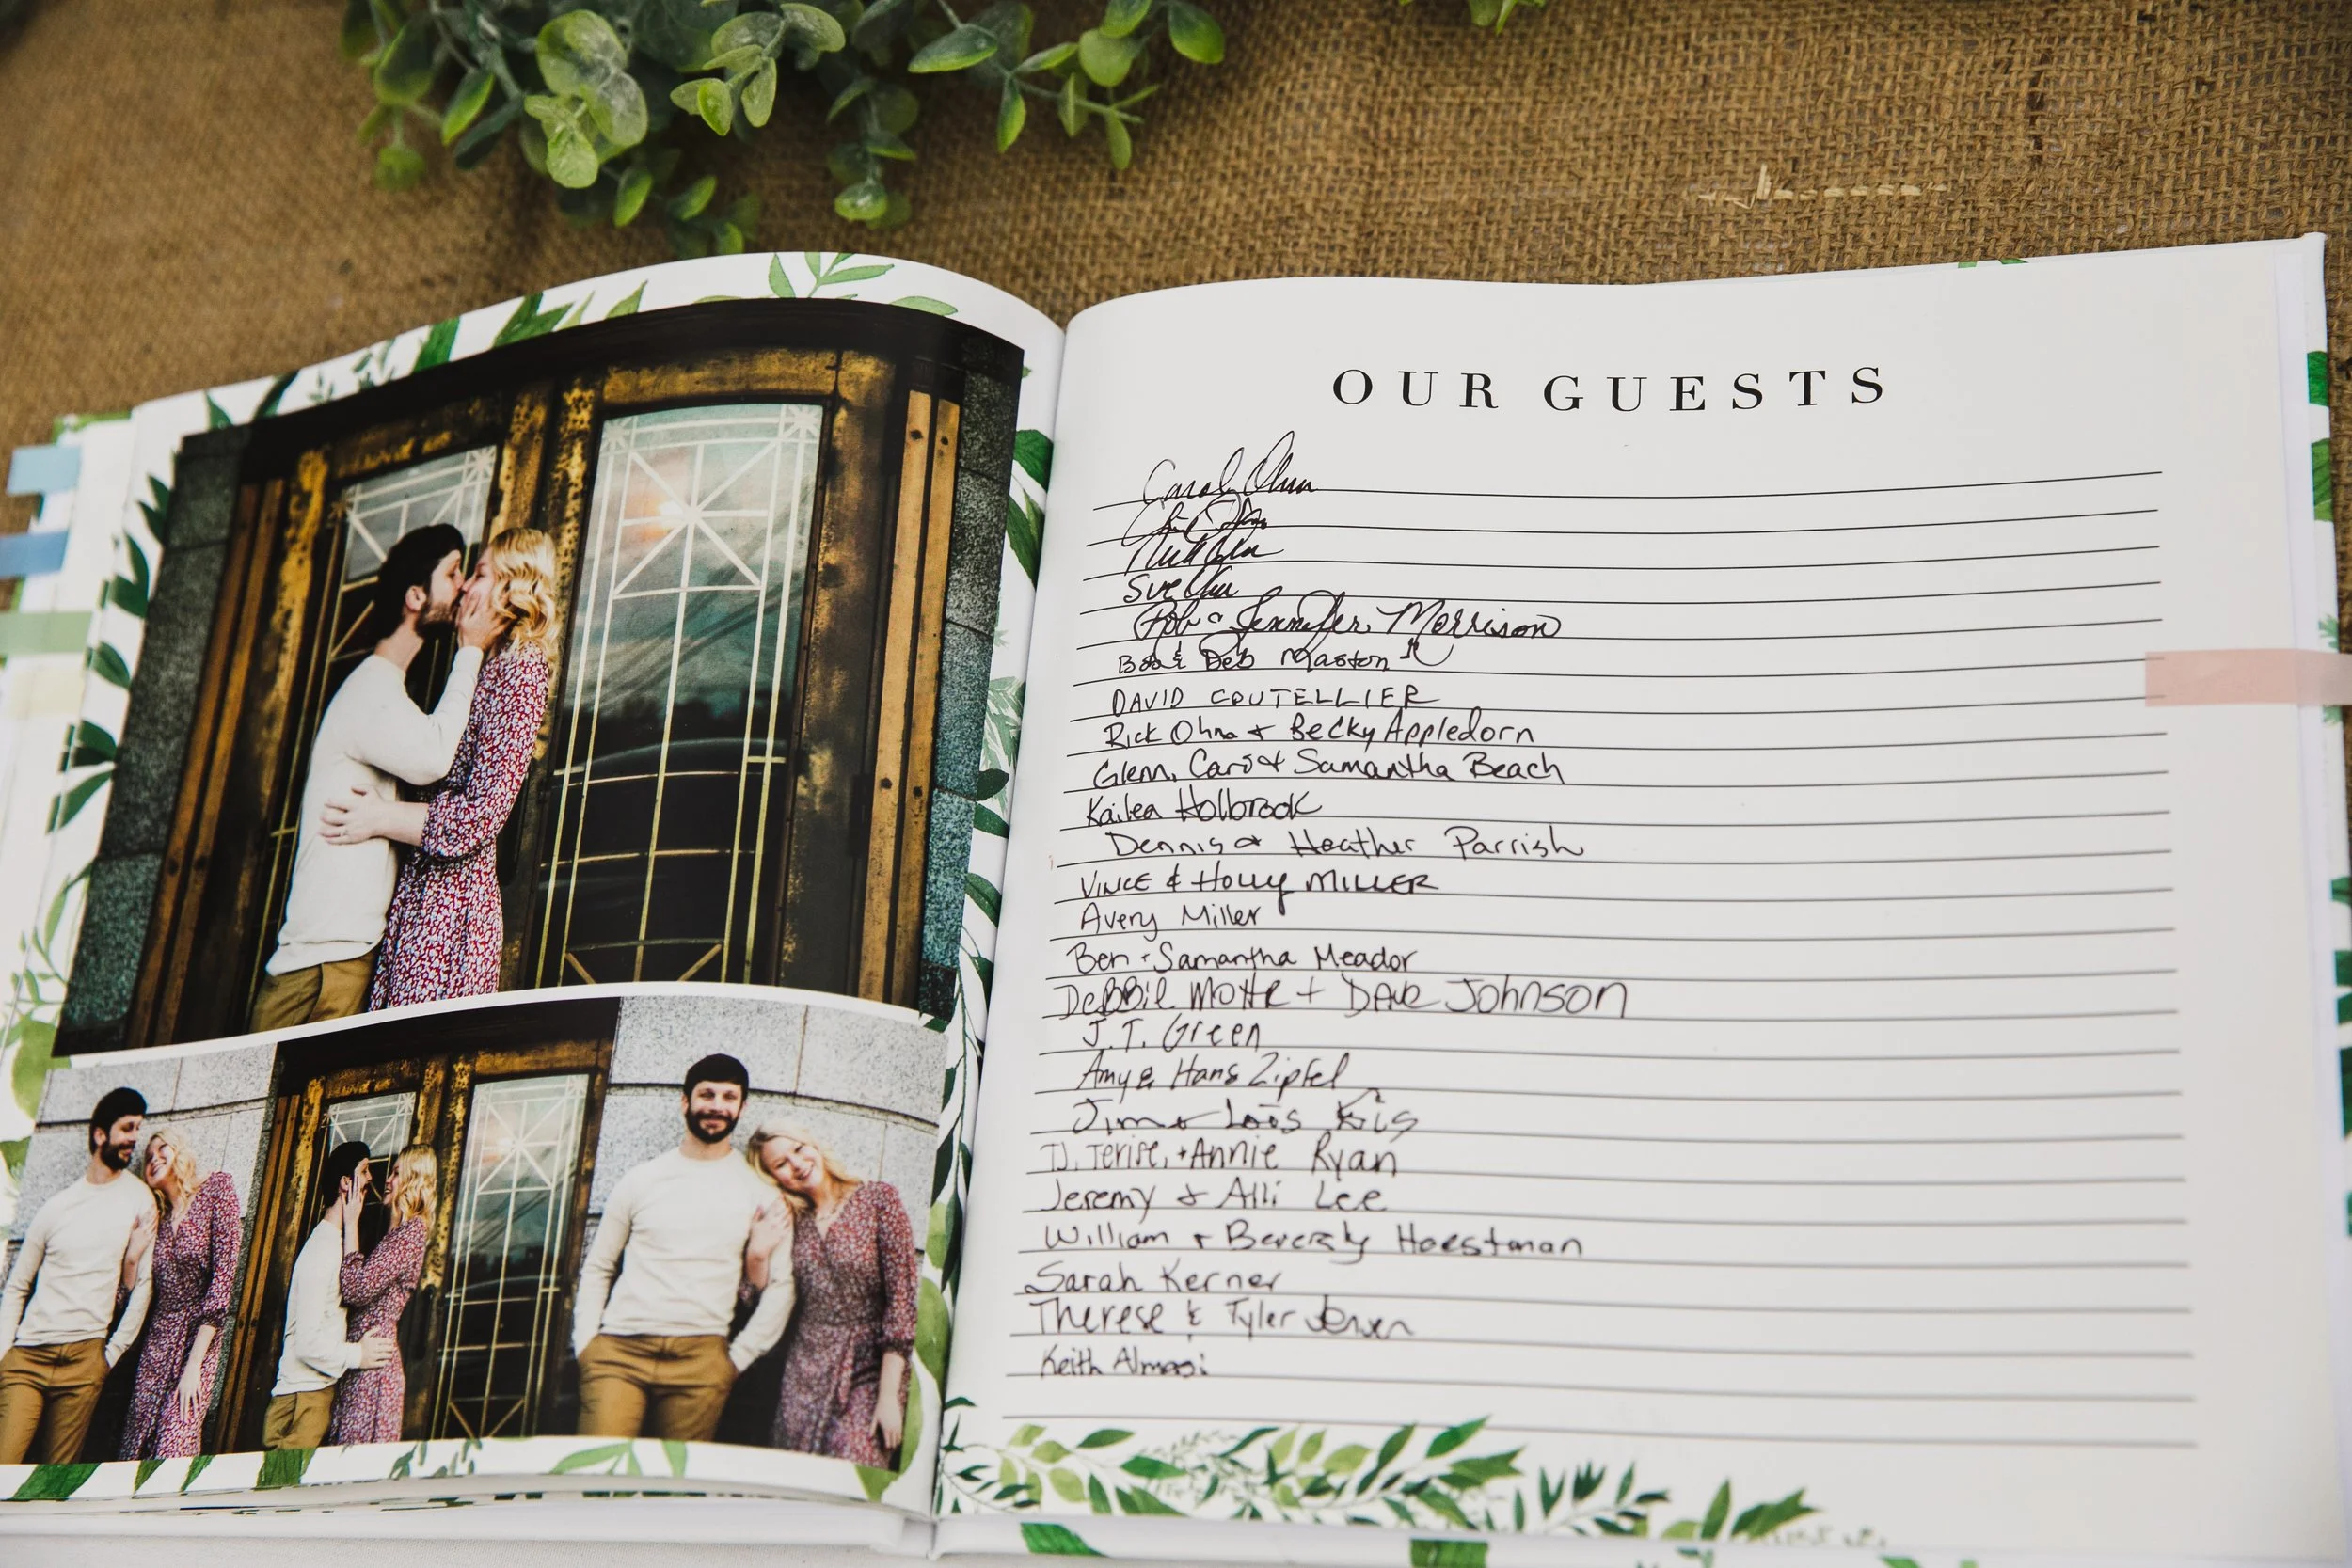 OUR GUESTS
Carol Ohna
Sue Ohna
Rob & Jennifer Morrison
Bob & Deb Maston
DAVID COUTELLIER
Rick Ohna + Becky Appledorn
Glenn, Caro & Samantha Beach
Kailea Holbrook
Dennis & Heather Parrish
VINCE & Holly MILLER
Avery Miller
Ben + Samantha Meador
Debbie Mohr + Dave Johnson
J.T. Green
Amy & Hans Zipfel
Jim + Lois
TJ, Terise, + Annie Ryan
Jeremy & Alli Lee
William + Beverly Horstman
Sarah Kerner
Therese & Tyler Jensen
Keith Almasi